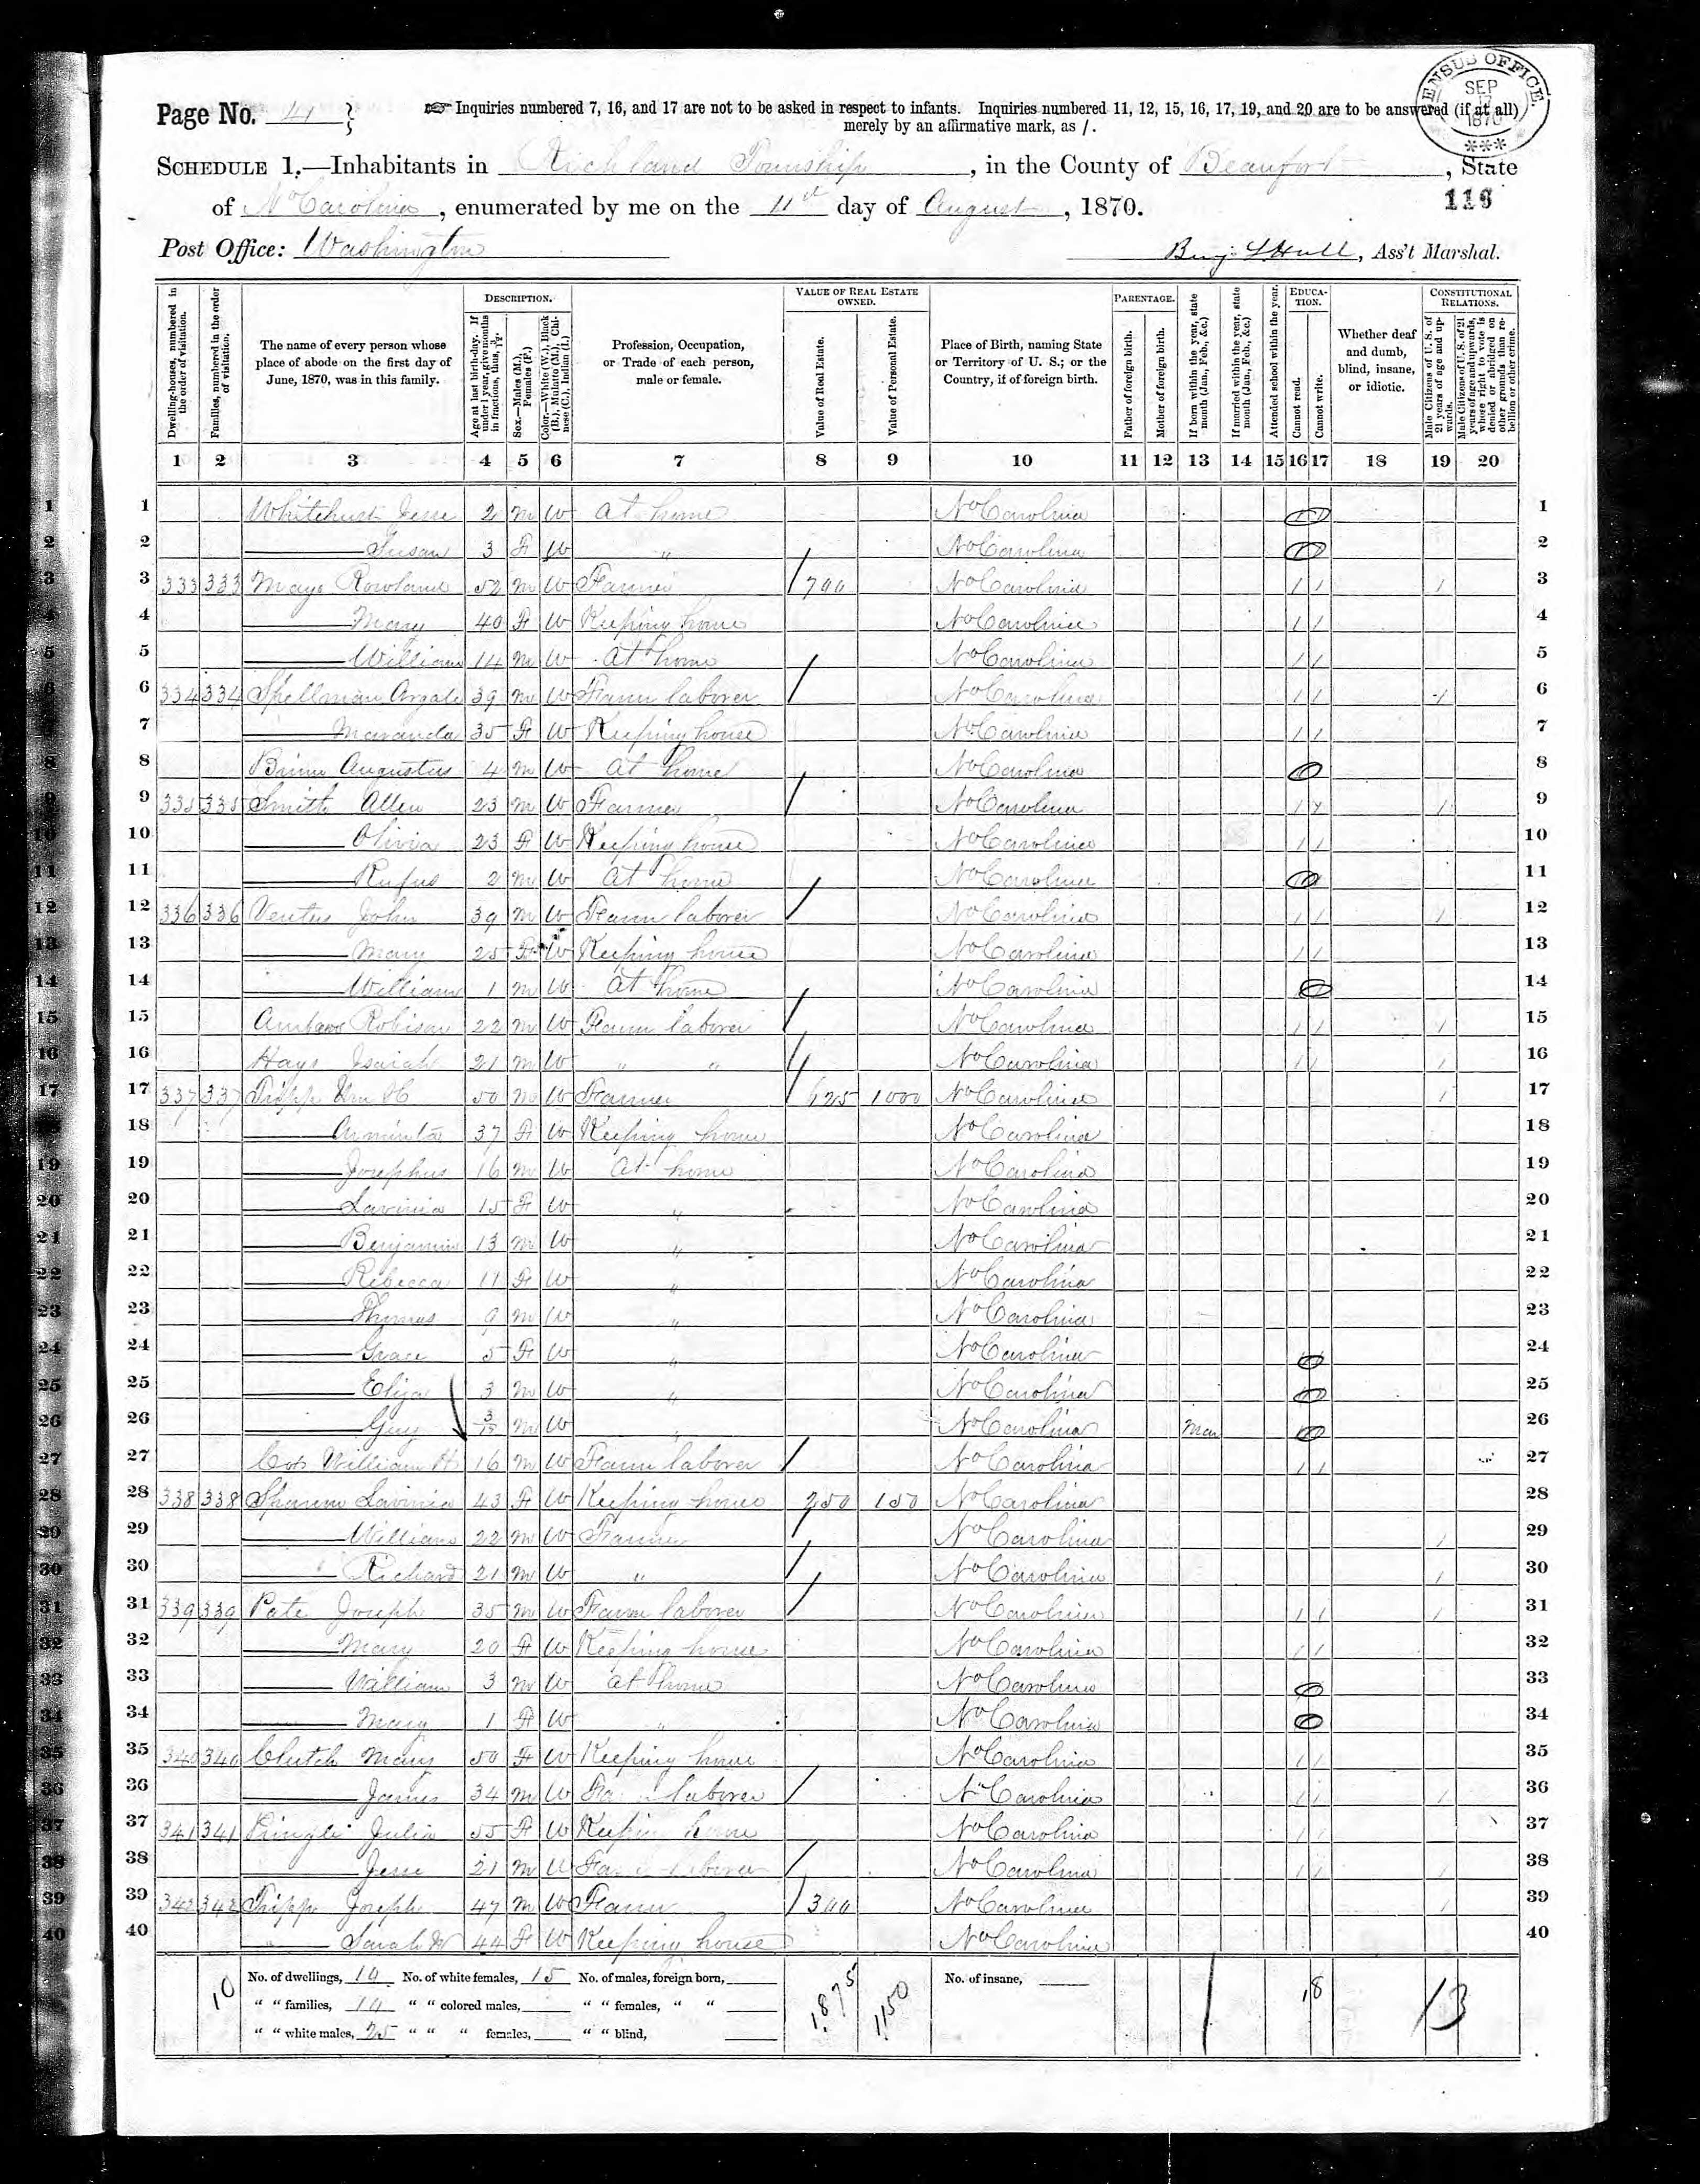 CENSUS OFFICE.
SEP
1870
***
Page No. 41
Inquiries numbered 7, 16, and 17 are not to be asked in respect to infants. Inquiries numbered 11, 12, 15, 16, 17, 19, and 20 are to be answered (if at all)
merely by an affirmative mark, as /.
SCHEDULE 1.—Inhabitants in Richland Township, in the County of Beaufort, State
of No Carolina, enumerated by me on the 11th day of August, 1870.
116
Post Office: Washington
Benj. Hull, Ass't Marshal.
Dwelling-houses, numbered in the order of visitation.
Families, numbered in the order of visitation.
The name of every person whose place of abode on the first day of June, 1870, was in this family.
DESCRIPTION.
Age at last birth-day. If under 1 year, give months in fractions, thus, 3/12.
Sex.—Males (M.), Females (F.)
Color.—White (W.), Black (B.), Mulatto (M.), Chinese (C.), Indian (I.)
Profession, Occupation, or Trade of each person, male or female.
VALUE OF REAL ESTATE OWNED.
Value of Real Estate.
Value of Personal Estate.
Place of Birth, naming State or Territory of U. S.; or the Country, if of foreign birth.
PARENTAGE.
Father of foreign birth.
Mother of foreign birth.
If born within the year, state month (Jan., Feb., &c.)
If married within the year, state month (Jan., Feb., &c.)
Attended school within the year.
EDUCATION.
Cannot read.
Cannot write.
Whether deaf and dumb, blind, insane, or idiotic.
CONSTITUTIONAL RELATIONS.
Male Citizens of U. S. of 21 years of age and upwards.
Male Citizens of U. S. of 21 years of age and upwards, whose right to vote is denied or abridged on other grounds than rebellion or other crime.
1 2 3 4 5 6 7 8 9 10 11 12 13 14 15 16 17 18 19 20
1 Whitehurst Jesse 2 M W At home No Carolina 1
2 Susan 3 F W " No Carolina 2
3 333 333 Mays Rowland 52 M W Farmer 700 No Carolina / / / 3
4 Mary 40 F W Keeping house No Carolina / / 4
5 William 14 M W At home No Carolina / / 5
6 334 334 Spellman 39 M W Farm laborer No Carolina / / / 6
7 Maranda 35 F W Keeping house No Carolina / / 7
8 Augustus 4 M W At home No Carolina 8
9 335 335 Smith Allen 23 M W Farmer No Carolina / / / 9
10 Olivia 23 F W Keeping house No Carolina / / 10
11 Rufus 2 M W At home No Carolina 11
12 336 336 Venters John 39 M W Farm laborer No Carolina / / / 12
13 Mary 25 F W Keeping house No Carolina / / 13
14 William 1 M W At home No Carolina 14
15 Robison 22 M W Farm laborer No Carolina / / / 15
16 Hays Isaiah 21 M W " " No Carolina / / / 16
17 337 337 Tripp Wm H 50 M W Farmer 625 1000 No Carolina / 17
18 Arminta 37 F W Keeping house No Carolina 18
19 Josephus 16 M W At home No Carolina 19
20 Lavinia 15 F W " No Carolina 20
21 Benjamin 13 M W " No Carolina 21
22 Rebecca 11 F W " No Carolina 22
23 Thomas 9 M W " No Carolina 23
24 Grace 5 F W " No Carolina 24
25 Eliza 3 M W " No Carolina 25
26 Guy 3/12 M W " No Carolina Mar 26
27 Cox William H 16 M W Farm laborer No Carolina / / 27
28 338 338 Lavinia 43 F W Keeping house 250 150 No Carolina 28
29 William 22 M W Farmer No Carolina / 29
30 Richard 21 M W " No Carolina / 30
31 339 339 Pate Joseph 35 M W Farm laborer No Carolina / / / 31
32 Mary 20 F W Keeping house No Carolina / / 32
33 William 3 M W At home No Carolina 33
34 Mary 1 F W " No Carolina 34
35 340 340 Clutch Mary 50 F W Keeping house No Carolina / / 35
36 James 34 M W Farm laborer No Carolina / / / 36
37 341 341 Pringle Julia 55 F W Keeping house No Carolina / / 37
38 Jesse 21 M W Farm laborer No Carolina / / / 38
39 342 342 Tripp Joseph 47 M W Farmer 300 No Carolina / 39
40 Sarah 44 F W Keeping house No Carolina 40
10
No. of dwellings, 10 No. of white females, 15 No. of males, foreign born,
" " families, 10 " " colored males, " " females, " "
" " white males, 25 " " " females, " " blind,
1,875
1,150
No. of insane,
1
18
13